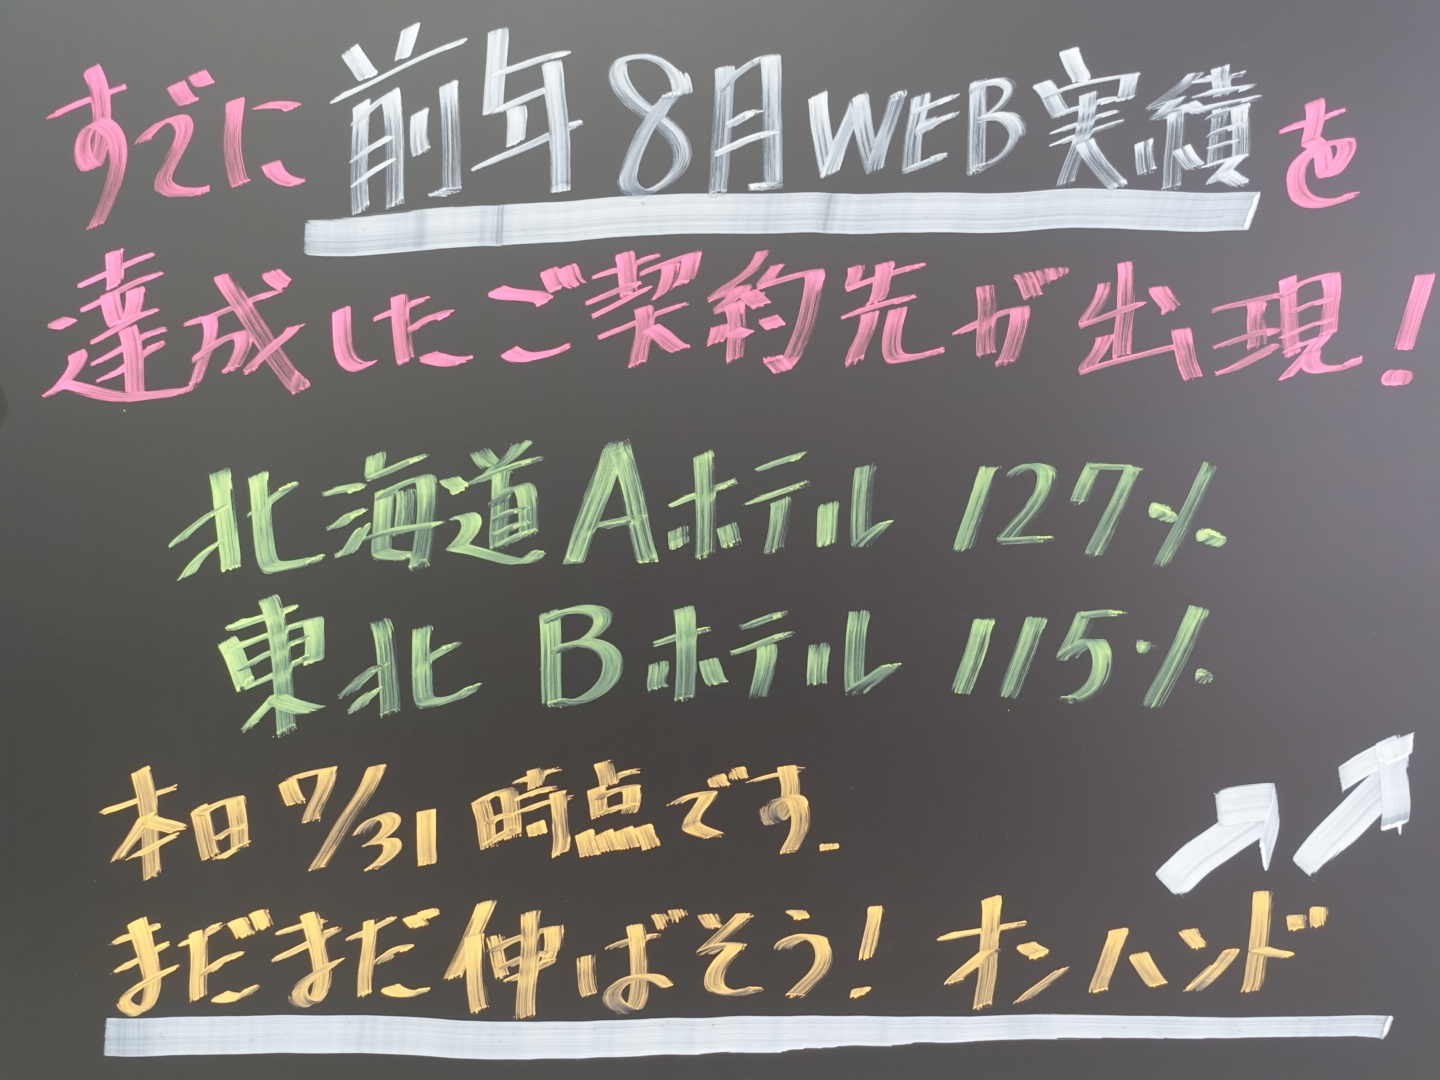 すでに前年8月WEB実績を
達成したご契約先が出現!
北海道Aホテル 127%
東北 Bホテル 115%
本日7/31時点です。
まだまだ伸ばそう! オンハンド